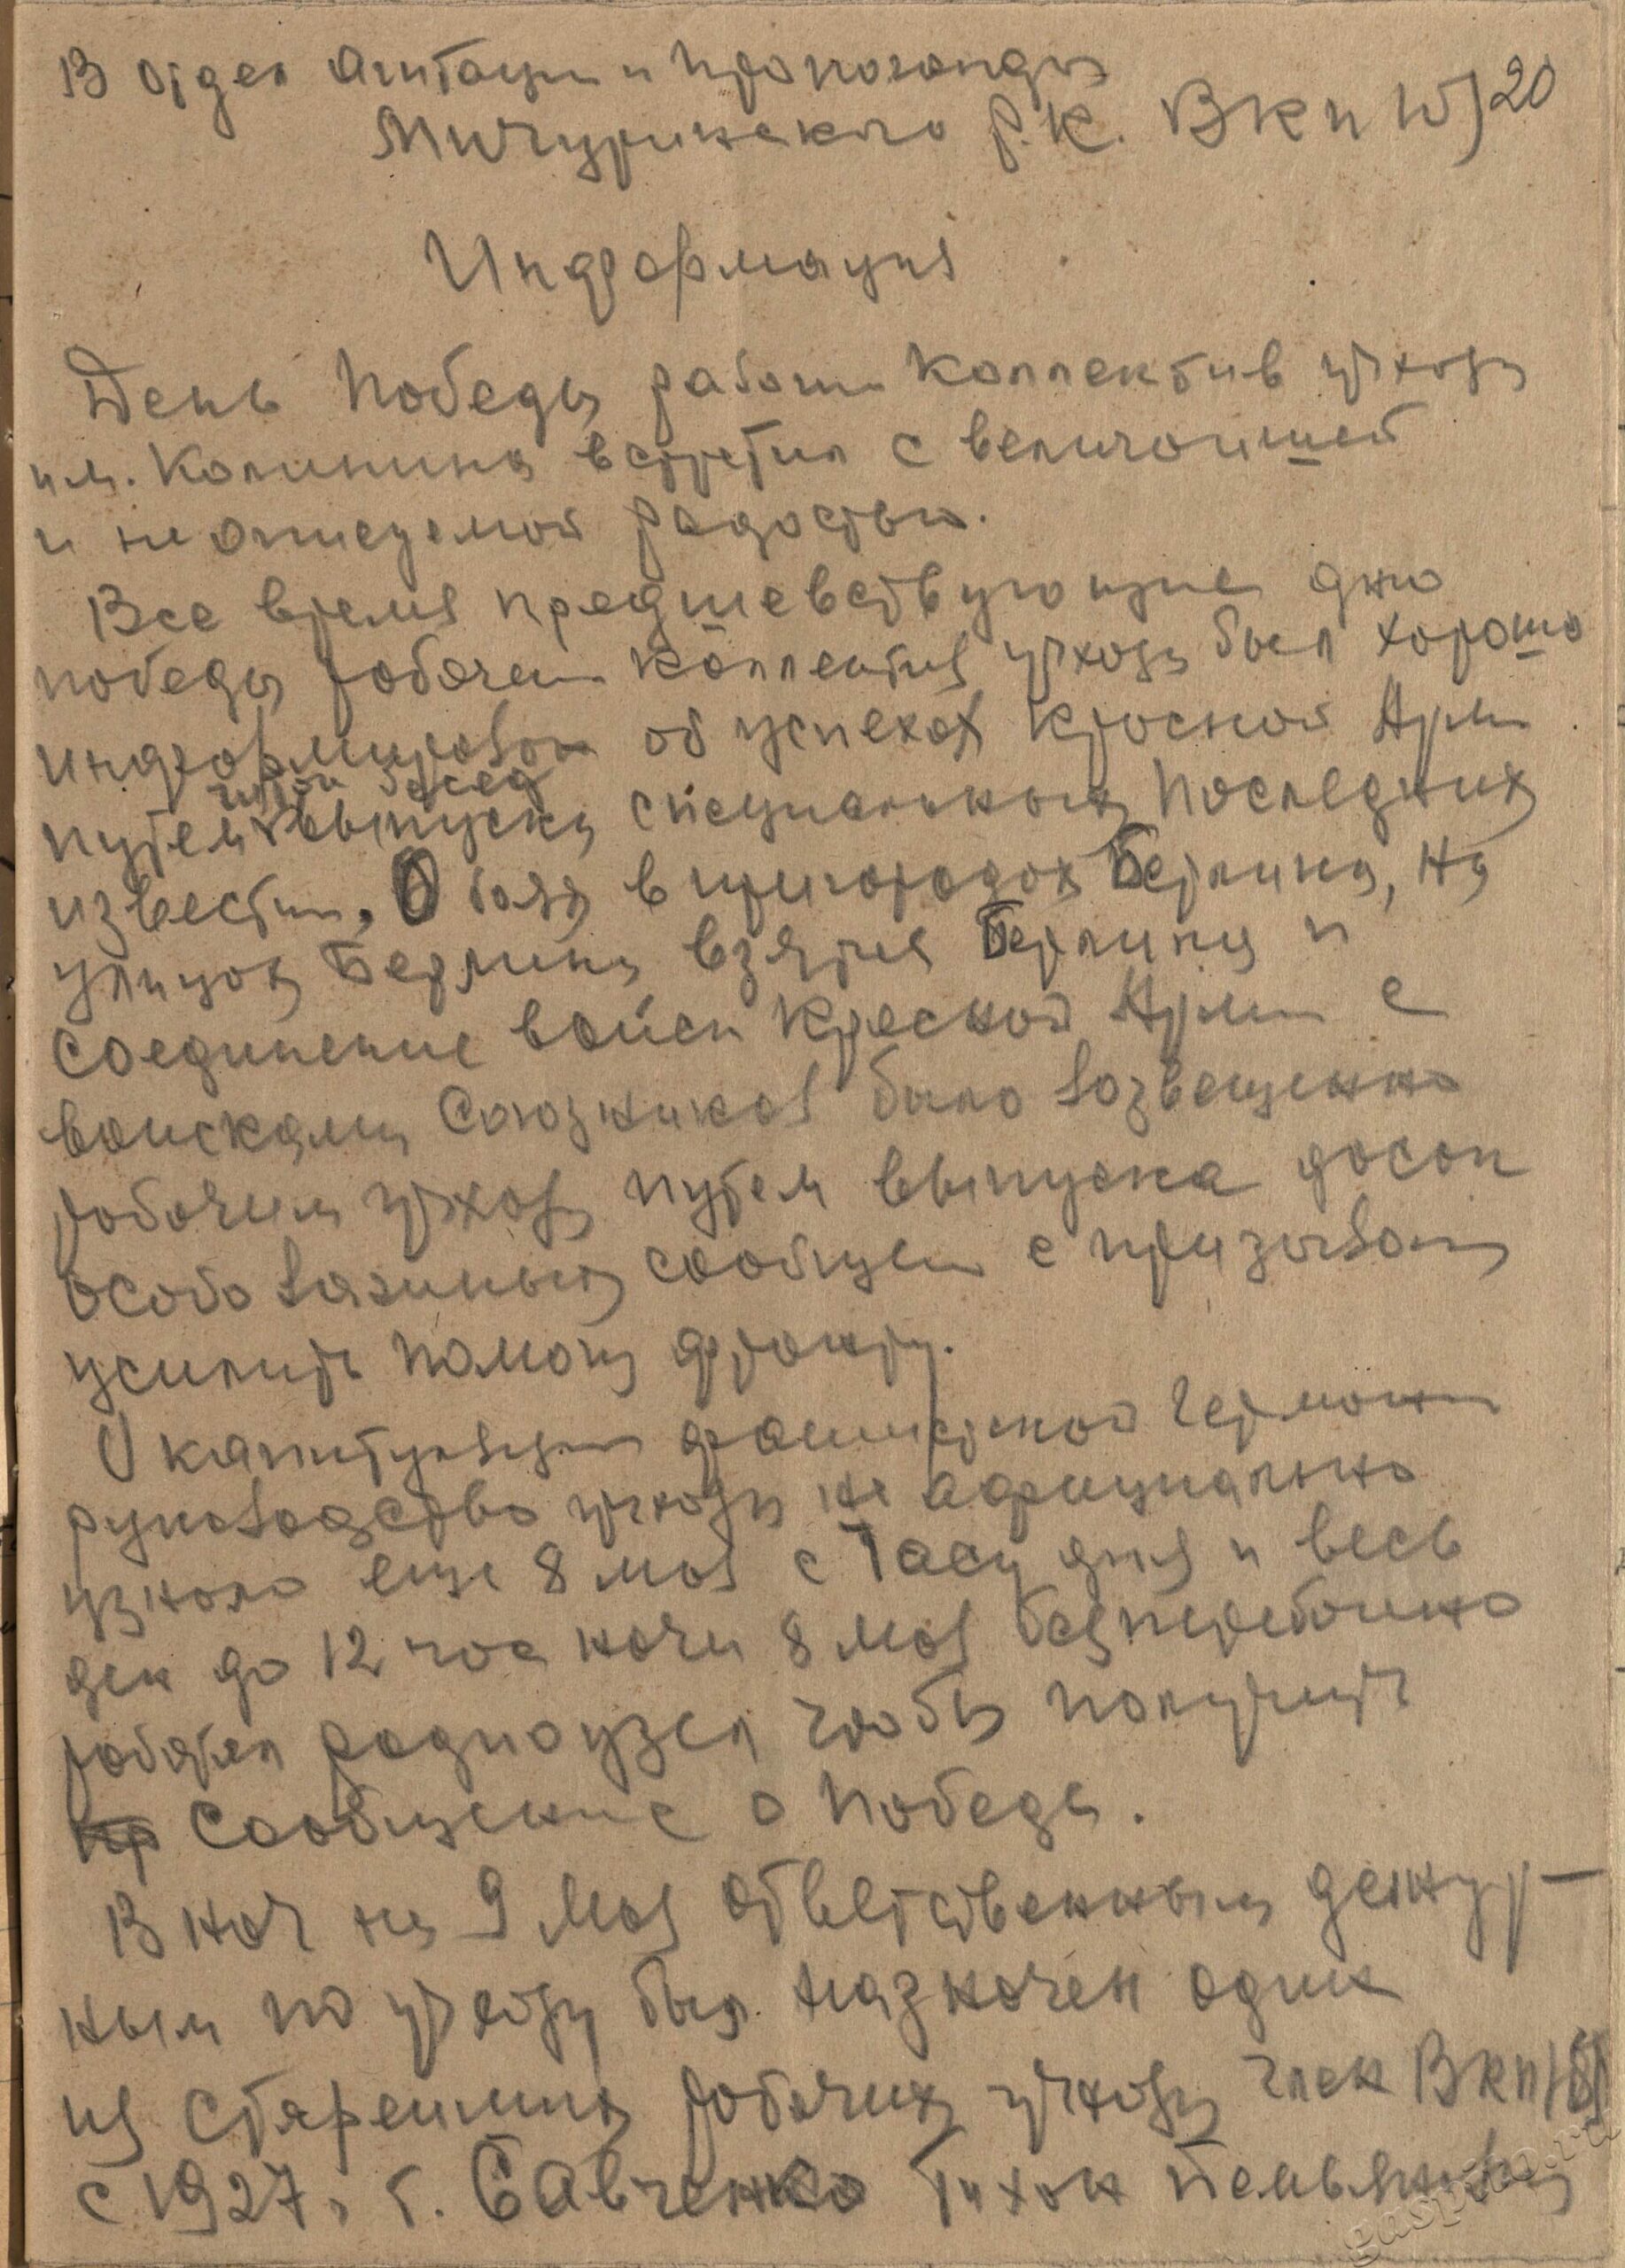 В отдел агитации и пропоганды
Мичуринского Р.К. ВКП(б) 20
Информация
День Победы рабочи коллектив учхоза
им. Калинина встретил с величайшей
и не описуемой радостью.
Все время предшевствующие дню
победы рабочеи коллектив учхоза был хорошо
информирован об успехах Красной Арми
читки бесед
путем выпуска специальных последних
известии. О боях в пригородах Берлина, на
улицах Берлина взятия Берлина и
соединение войск Красной Арми с
воисками Союзников было возвещенно
рабочим учхоза путем выпуска досок
особо важных сообщен с призывом
усилить помощ фронту.
О капитуляции фашистской Германи
руководство учхоза не афициально
узнало еще 8 мая с часу дня и весь
ден до 12 час ночи 8 мая безперебойно
работал радиоузел чтобы получить
сообщение о Победы.
В ноч на 9 мая ответственным дежур-
ным по учхозу был назначен один
из стареиших рабочих учхоза член ВКП(б)
с 1927 г. т. Савченко Тихон
gaspito.ru